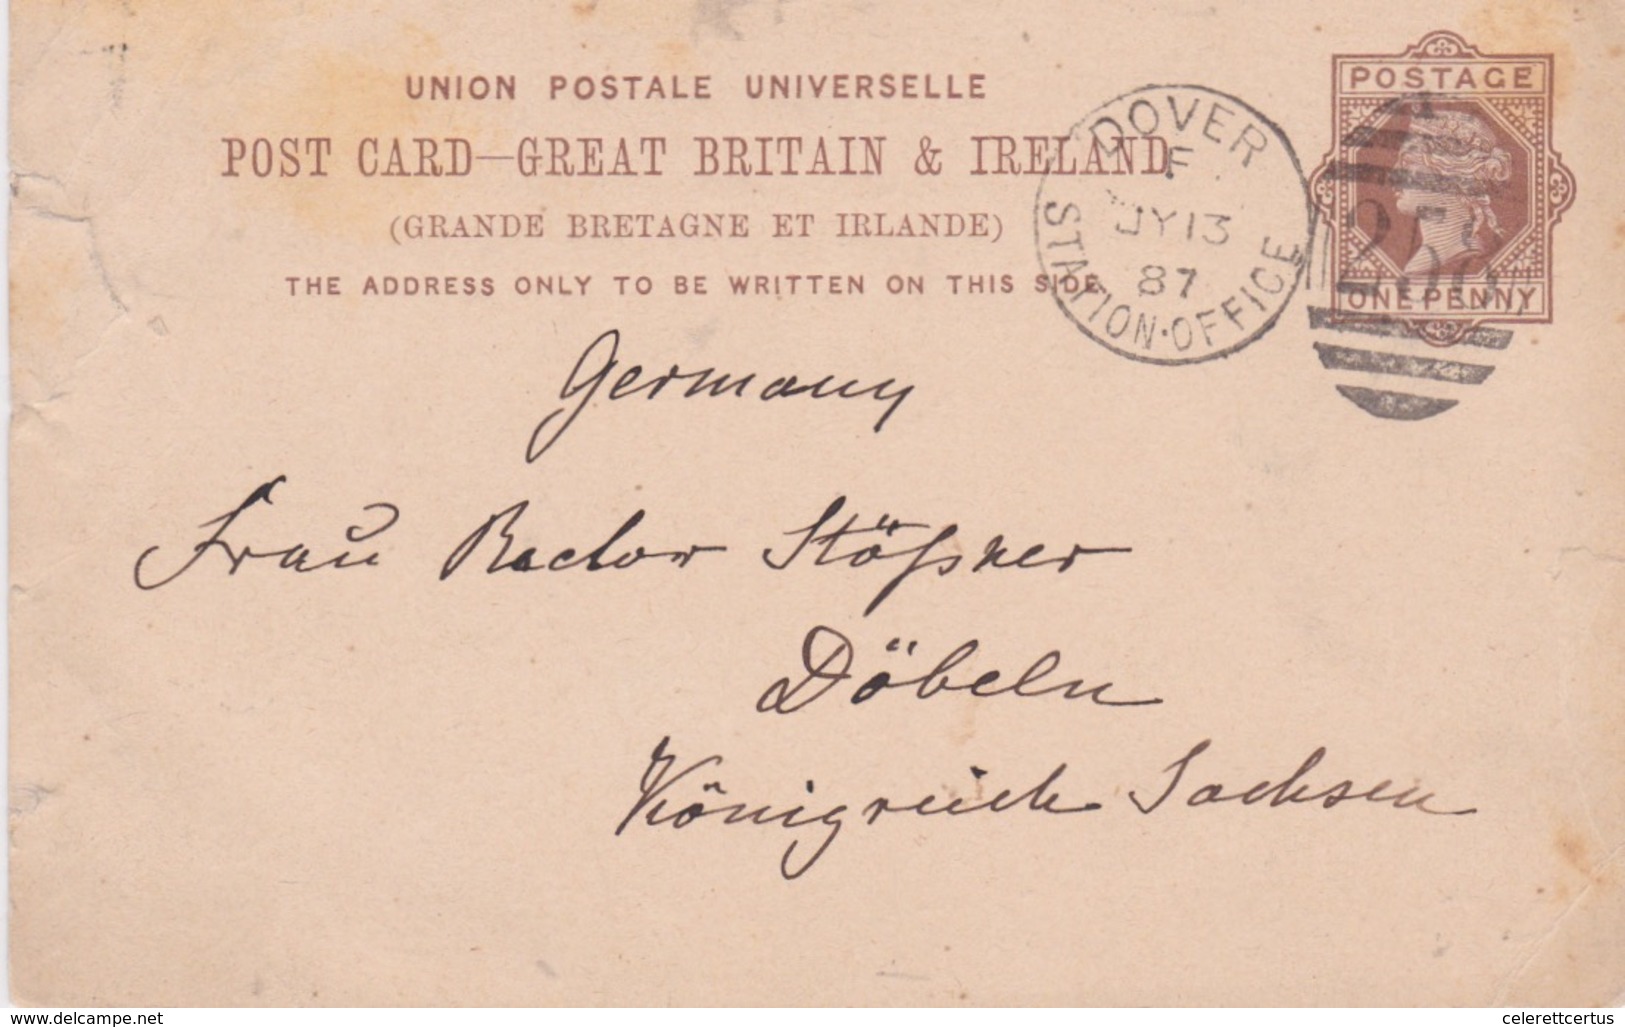 UNION POSTALE UNIVERSELLE
POST CARD—GREAT BRITAIN & IRELAND
(GRANDE BRETAGNE ET IRLANDE)
THE ADDRESS ONLY TO BE WRITTEN ON THIS SIDE.
DOVER
F
JY 13
87
STATION·OFFICE
POSTAGE
258
ONE PENNY
Germany
Frau Rector Stößner
Döbeln
Königreich Sachsen
www.delcampe.net
celerettcertus